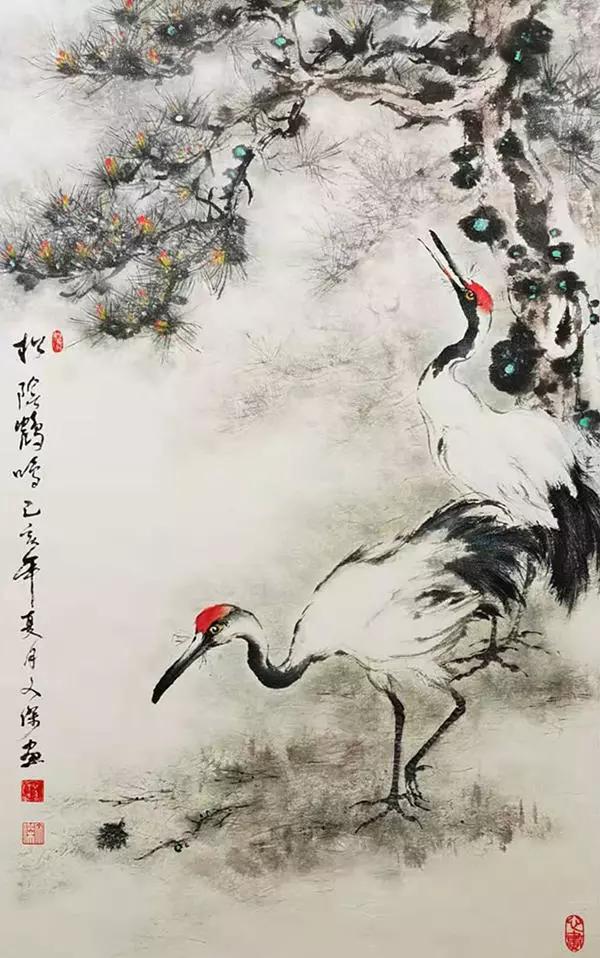 松陰鶴鳴己亥年夏月文傑画